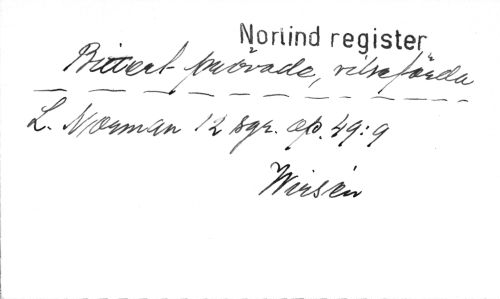 Norlind register
Bittert prövade, vilseförda
L. Norman 12 sgr. op. 49:9
Wirsén